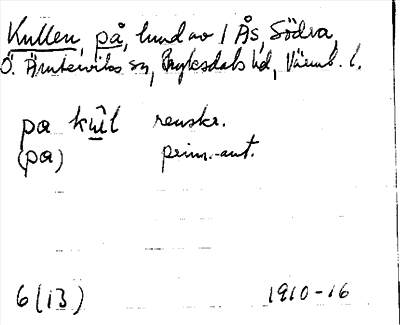 Kullen, på, hmd av 1 Ås, Södra,
Ö. Ämterviks sn, Fryksdals hd, Värml. l.
pa kul renskr.
(pa) prim.-ant.
6(13) 1910-16